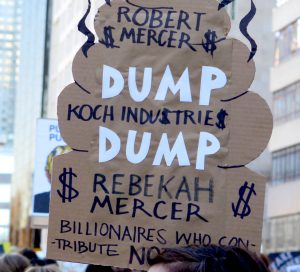 ROBERT
$ MERCER $
DUMP
KOCH INDU$TRIE$
DUMP
$ REBEKAH $
MERCER
BILLIONAIRES WHO CON-
-TRIBUTE